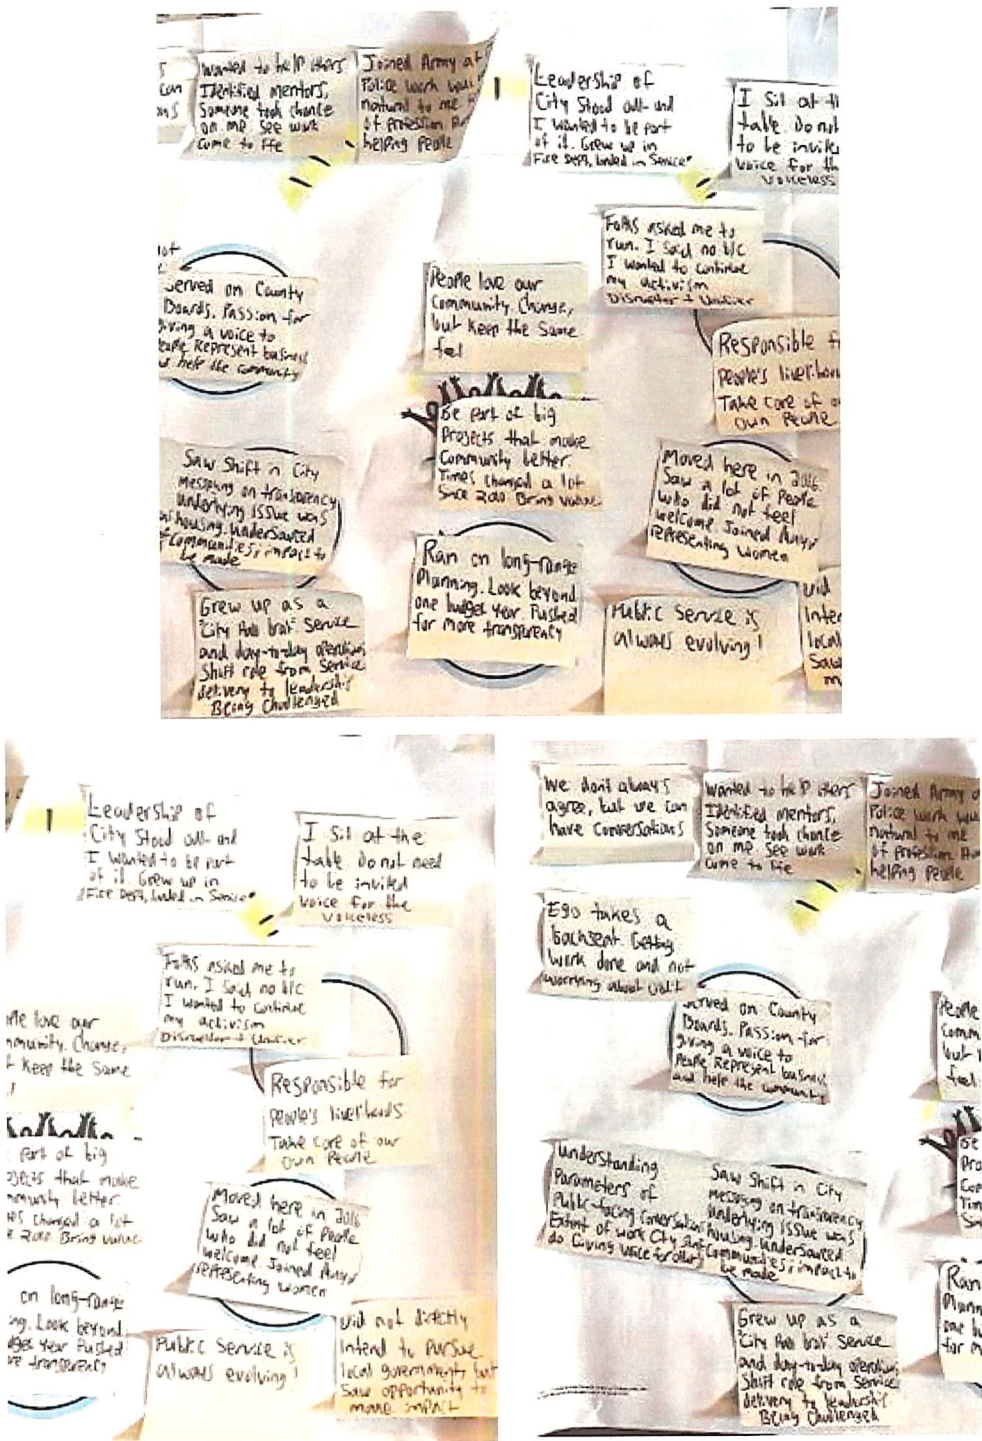 Wanted to help others
Identified mentors,
Someone took chance
on me. See work
come to life
Joined Army at
Police work was
natural to me
of profession
helping people
Leadership of
City Stood out and
I wanted to be part
of it. Grew up in
Fire Dept, in Service
I sit at th
table. Do not
to be invite
voice for th
voiceless
Folks asked me to
run. I said no b/c
I wanted to continue
my activism
Disruptor + Unifier
Served on County
Boards. Passion for
giving a voice to
People. Represent business
help the community
People love our
Community. Change,
but keep the same
feel
Responsible f
people's livelihoo
Take care of o
own people
Be part of big
Projects that make
Community better.
Times changed a lot
Since 2010. Bring value
Saw Shift in City
messaging on transparency
Underlying issue was
housing. Undersourced
Communities; impact to
be made
Moved here in 2016
Saw a lot of People
who did not feel
welcome. Joined
representing women
Ran on long-range
Planning. Look beyond
one budget year. Pushed
for more transparency
Grew up as a
"City Hall brat". Service
and day-to-day operations
Shift role from Service
delivery to leadership
Being Challenged
Public Service is
always evolving!
Did
Inten
local
Saw
m
Leadership of
City Stood out and
I wanted to be part
of it. Grew up in
Fire Dept, in Service
I sit at the
table. Do not need
to be invited
voice for the
voiceless
Folks asked me to
run. I said no b/c
I wanted to continue
my activism
Disruptor + Unifier
ple love our
mmunity. Change,
t keep the same
Responsible for
people's livelihoods
Take care of our
own people
part of big
ojects that make
mmunity better.
es changed a lot
e 2010. Bring value
Moved here in 2016
Saw a lot of People
who did not feel
welcome. Joined
representing women
on long-range
ng. Look beyond
dget year. Pushed
re transparency
Public Service is
always evolving!
Did not directly
Intend to pursue
local government but
Saw opportunity to
make impact
We don't always
agree, but we can
have conversations
Wanted to help others
Identified mentors,
Someone took chance
on me. See work
come to life
Joined Army a
Police work was
natural to me
of profession
helping people
Ego takes a
backseat. Getting
work done and not
worrying about
Served on County
Boards. Passion for
giving a voice to
People. Represent business
and help the community
People
Comm
but k
feel
Understanding
Parameters of
Public-facing conversations
Extent of work City
do. Giving voice for others
Saw Shift in City
messaging on transparency
Underlying issue was
housing. Undersourced
Communities; impact to
be made
Be
Pro
Com
Tim
Sin
Grew up as a
"City Hall brat". Service
and day-to-day operations
Shift role from Service
delivery to leadership
Being Challenged
Ran
Plann
one bu
for m